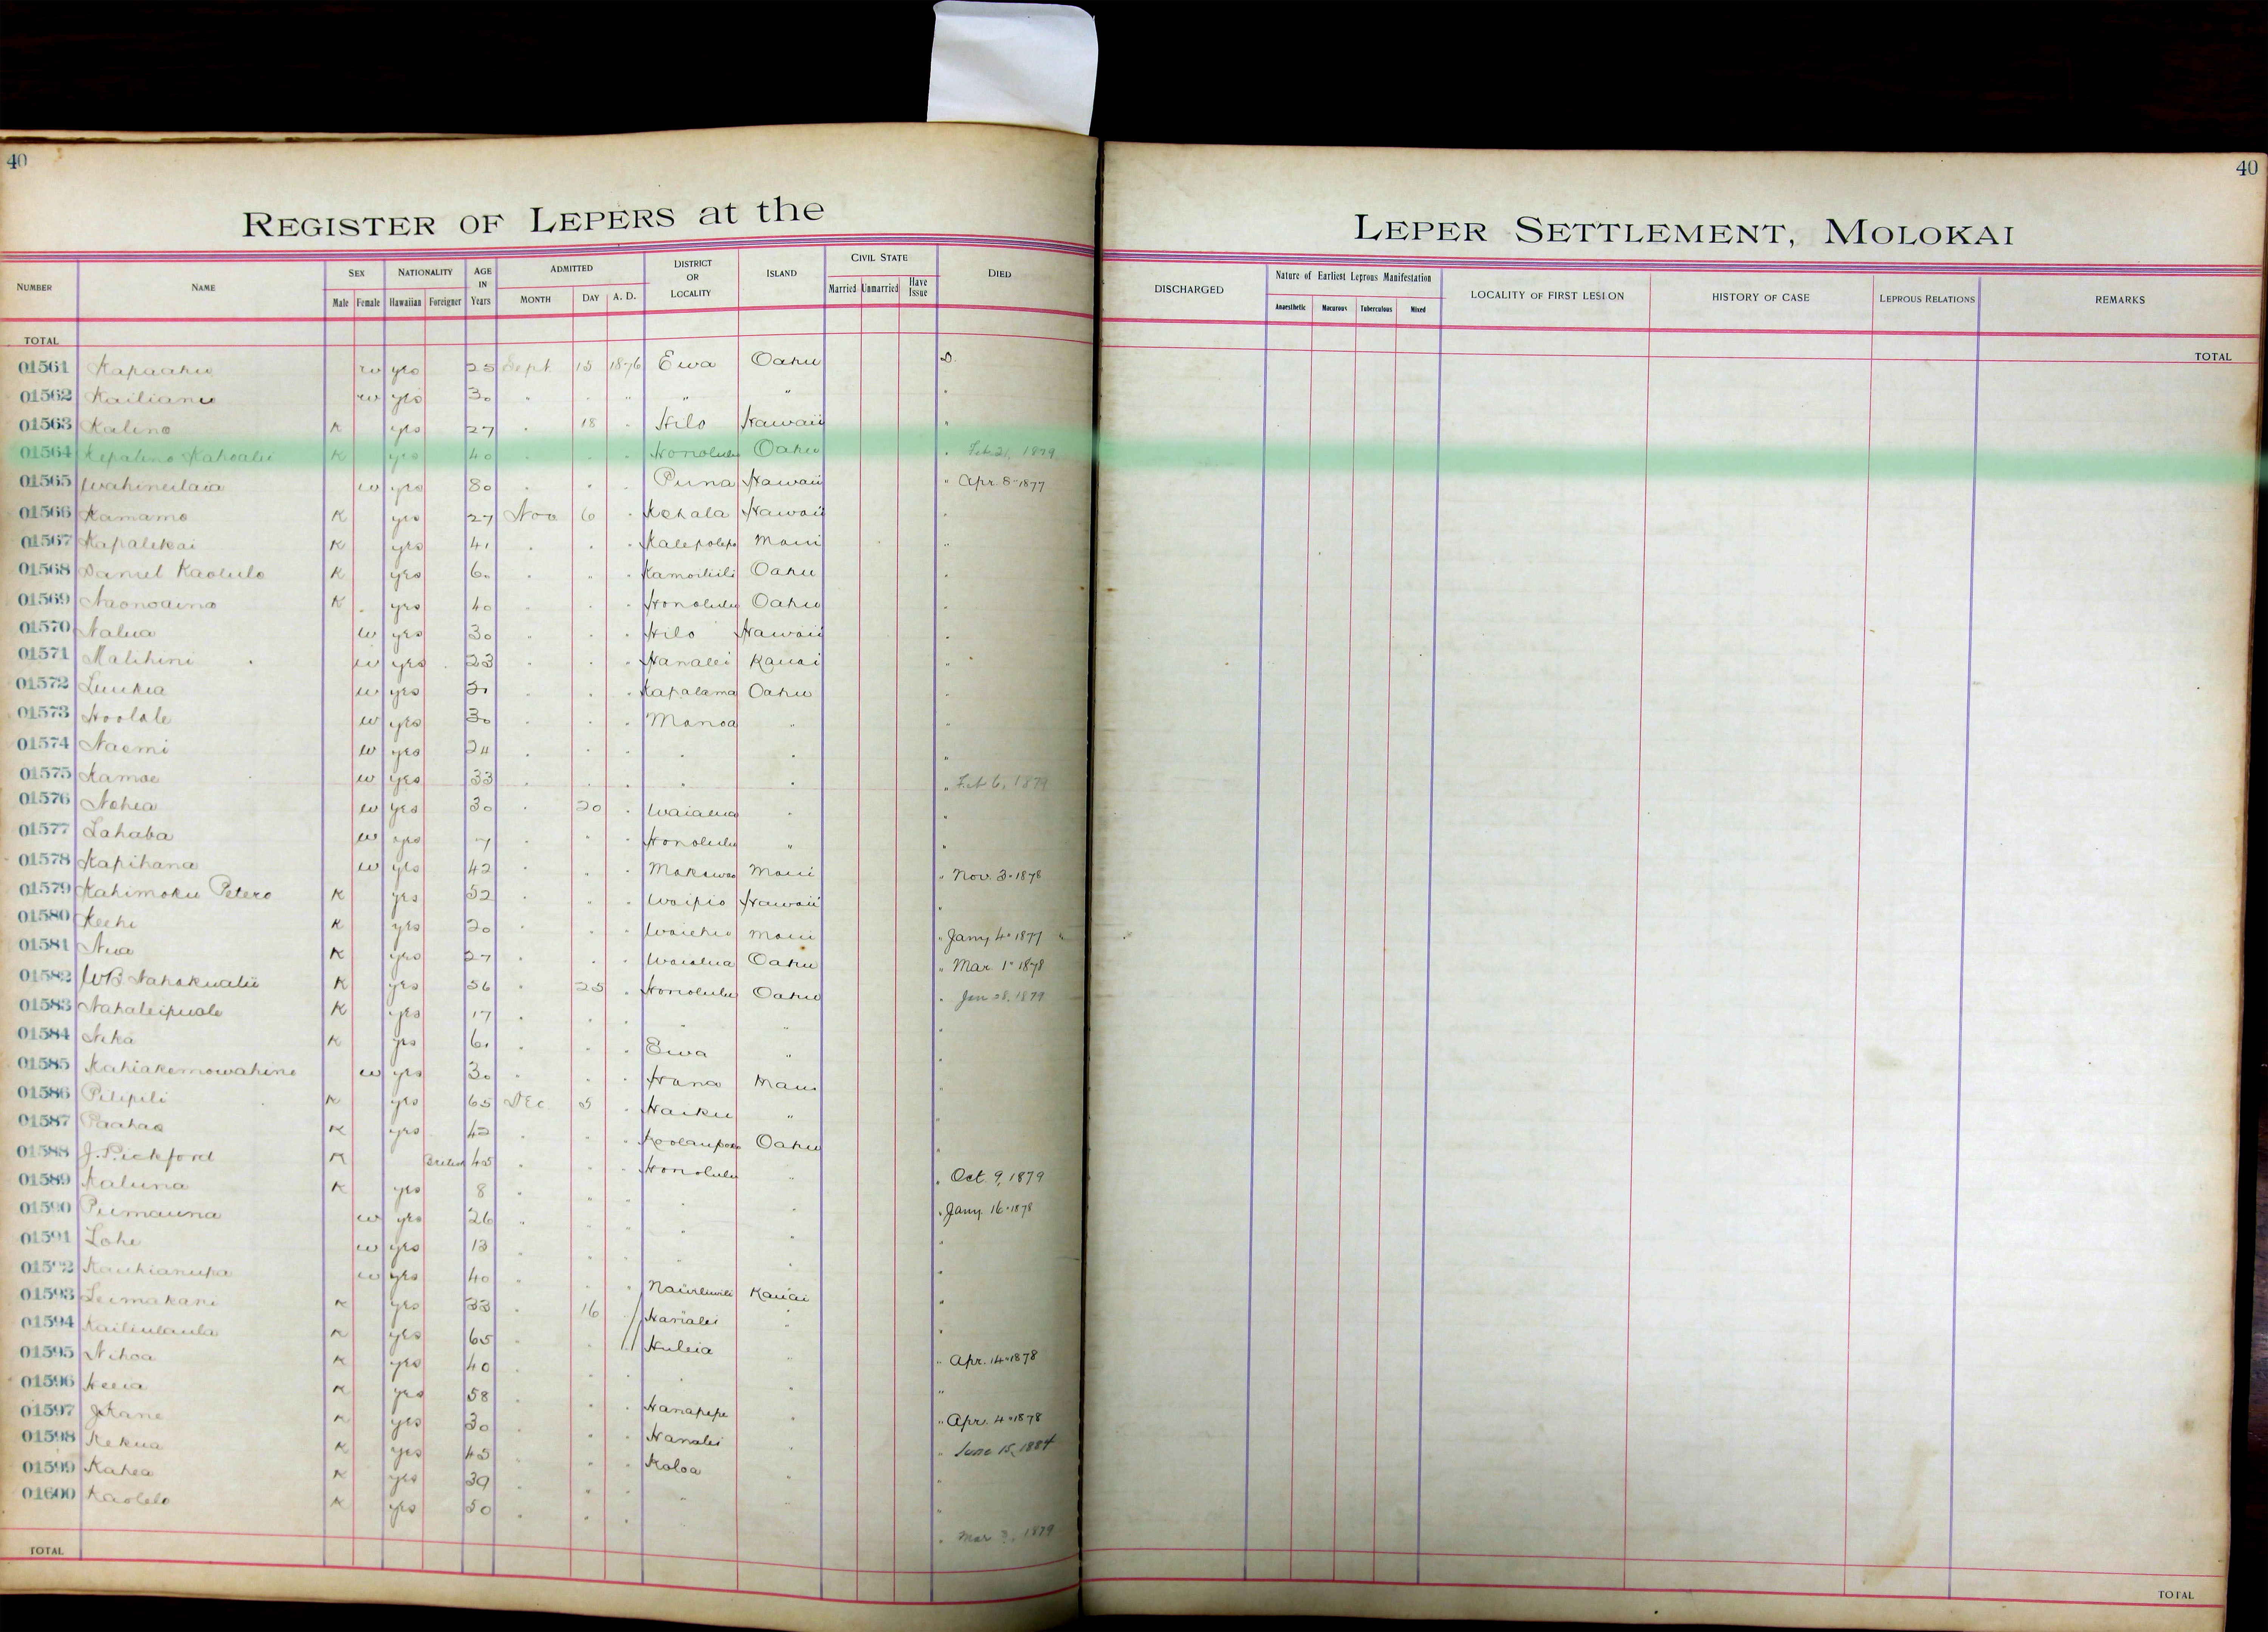 40
40
REGISTER OF LEPERS at the
LEPER SETTLEMENT, MOLOKAI
NUMBER NAME SEX NATIONALITY AGE IN Years ADMITTED DISTRICT OR LOCALITY ISLAND CIVIL STATE DIED
Male Female Hawaiian Foreigner MONTH DAY A. D. Married Unmarried Have Issue
DISCHARGED Nature of Earliest Leprous Manifestation LOCALITY OF FIRST LESION HISTORY OF CASE LEPROUS RELATIONS REMARKS
Anaesthetic Macurous Tuberculous Mixed
TOTAL
TOTAL
01561 Kapaahu w yes 25 Sept 15 1876 Ewa Oahu D.
01562 Kailianu w yes 30 " " " " " "
01563 Kalino K yes 27 " 18 " Hilo Hawaii "
01564 Kepalino Kahoalii K yes 40 " " " Honolulu Oahu " Feb 21, 1879
01565 Wahineilaia w yes 80 " " " Puna Hawaii " Apr. 8-1877
01566 Kamamo K yes 27 Nov 6 " Kohala Hawaii "
01567 Kapalekai K yes 41 " " " Kalepolepo Maui "
01568 Daniel Kaolulo K yes 60 " " " Kamoiliili Oahu "
01569 Naonoaina K yes 40 " " " Honolulu Oahu "
01570 Nalua w yes 30 " " " Hilo Hawaii "
01571 Malihini w yes 23 " " " Hanalei Kauai "
01572 Luukia w yes " " " Kapalama Oahu "
01573 Hoolale w yes 30 " " " Manoa " "
01574 Naomi w yes 24 " " " " " "
01575 Kamae w yes 33 " " " " " " Feb 6, 1879
01576 Nohea w yes 30 " 20 " Waialua " "
01577 Lahaba w yes 7 " " " Honolulu " "
01578 Kapihana w yes 42 " " " Makawao Maui " Nov. 3-1878
01579 Kahimoku Petero K yes 52 " " " Waipio Hawaii "
01580 Keehi K yes 20 " " " Waiehu Maui " Jany 4-1877
01581 Nua K yes 27 " " " Waialua Oahu " Mar. 1-1878
01582 WB Nahokualii K yes 56 " 25 " Honolulu Oahu " Jan 28, 1879
01583 Nahaleipuale K yes 17 " " " " " "
01584 Nika K yes 61 " " " Ewa " "
01585 Kahiakemowahine w yes 30 " " " Hana Maui "
01586 Pilipili K yes 65 Dec 5 " Haiku " "
01587 Paahao K yes 42 " " " Koolaupoko Oahu "
01588 J. Pickford K British 45 " " " Honolulu " " Oct. 9, 1879
01589 Kaluna K yes 8 " " " " " " Jany 16-1878
01590 Puimauna w yes 26 " " " " " "
01591 Lohe w yes 13 " " " " " "
01592 Kauhianupa w yes 40 " " " Nawiliwili Kauai "
01593 Leimakani K yes 33 " 16 Hanalei " "
01594 Kailiulaula K yes 65 " " Huleia " " Apr. 14-1878
01595 Nihoa K yes 40 " " " " "
01596 Heeia K yes 58 " " " Hanapepe " " Apr. 4-1878
01597 J Kane K yes 30 " " " Hanalei " " June 15, 1884
01598 Kekua K yes 45 " " " Koloa " "
01599 Kahea K yes 39 " " " " " "
01600 Kaolelo K yes 50 " " " " Mar 3, 1879
TOTAL
TOTAL